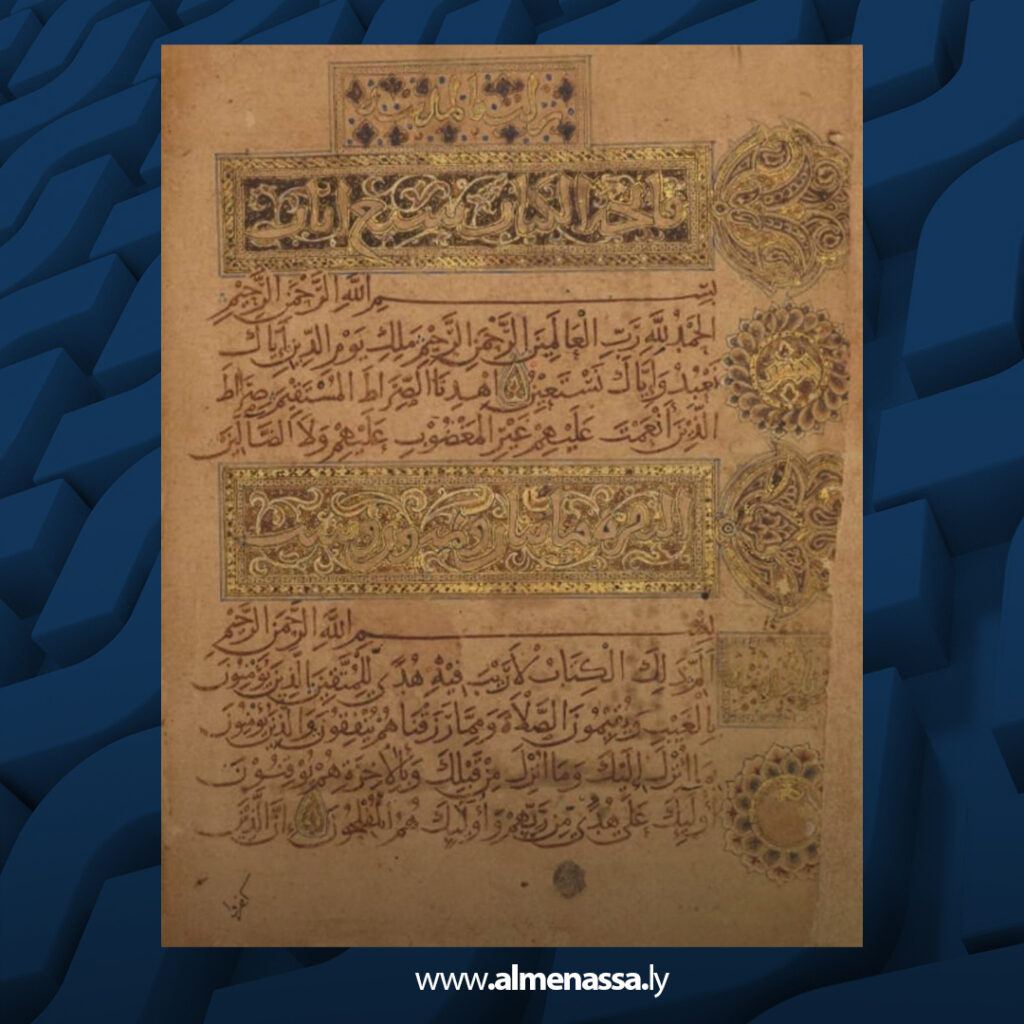 نزلت
فاتحة الكتاب سبع ايات
بِسْمِ اللَّهِ الرَّحْمَنِ الرَّحِيمِ
الْحَمْدُ لِلَّهِ رَبِّ الْعَالَمِينَ الرَّحْمَنِ الرَّحِيمِ مَلِكِ يَوْمِ الدِّينِ اِيَّاكَ
نَعْبُدُ وَاِيَّاكَ نَسْتَعِينُ اهْدِنَا الصِّرَاطَ الْمُسْتَقِيمَ صِرَاطَ
الَّذِينَ أَنْعَمْتَ عَلَيْهِمْ غَيْرِ الْمَغْضُوبِ عَلَيْهِمْ وَلَا الضَّالِّينَ
البقرة مايتان
بِسْمِ اللَّهِ الرَّحْمَنِ الرَّحِيمِ
الَمّ ذَلِكَ الْكِتَابُ لَا رَيْبَ فِيهِ هُدًى لِلْمُتَّقِينَ الَّذِينَ يُؤْمِنُونَ
بِالْغَيْبِ وَيُقِيمُونَ الصَّلَاةَ وَمِمَّا رَزَقْنَاهُمْ يُنْفِقُونَ وَالَّذِينَ يُؤْمِنُونَ
بِمَا أُنْزِلَ إِلَيْكَ وَمَا أُنْزِلَ مِنْ قَبْلِكَ وَبِالْآخِرَةِ هُمْ يُوقِنُونَ
أُولَيِكَ عَلَى هُدًى مِنْ رَبِّهِمْ وَأُولَيِكَ هُمُ الْمُفْلِحُونَ إِنَّ الَّذِينَ
كفروا
www.almenassa.ly